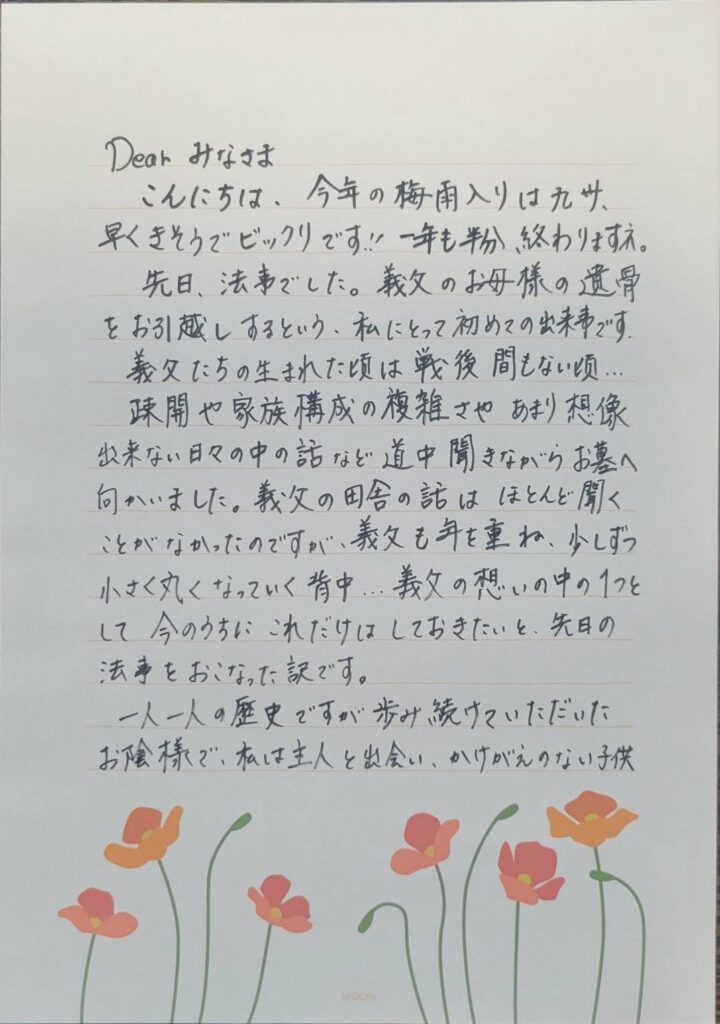 Dear みなさま
こんにちは、今年の梅雨入りは九州、
早くきそうでビックリです!! 一年も半分、終わりますネ。
先日、法事でした。義父のお母様の遺骨
をお引越しするという、私にとって初めての出来事です.
義父たちの生まれた頃は戦後間もない頃…
疎開や家族構成の複雑さや あまり想像
出来ない日々の中の話など道中聞きながらお墓へ
向かいました。義父の田舎の話は ほとんど聞く
ことがなかったのですが、義父も年を重ね、少しずつ
小さく丸くなっていく背中…義父の想いの中の1つと
して 今のうちに これだけは しておきたいと、先日の
法事をおこなった訳です。
一人一人の歴史ですが歩み続けていただいた
お陰様で、私は主人と出会い、かけがえのない子供
MIDORI